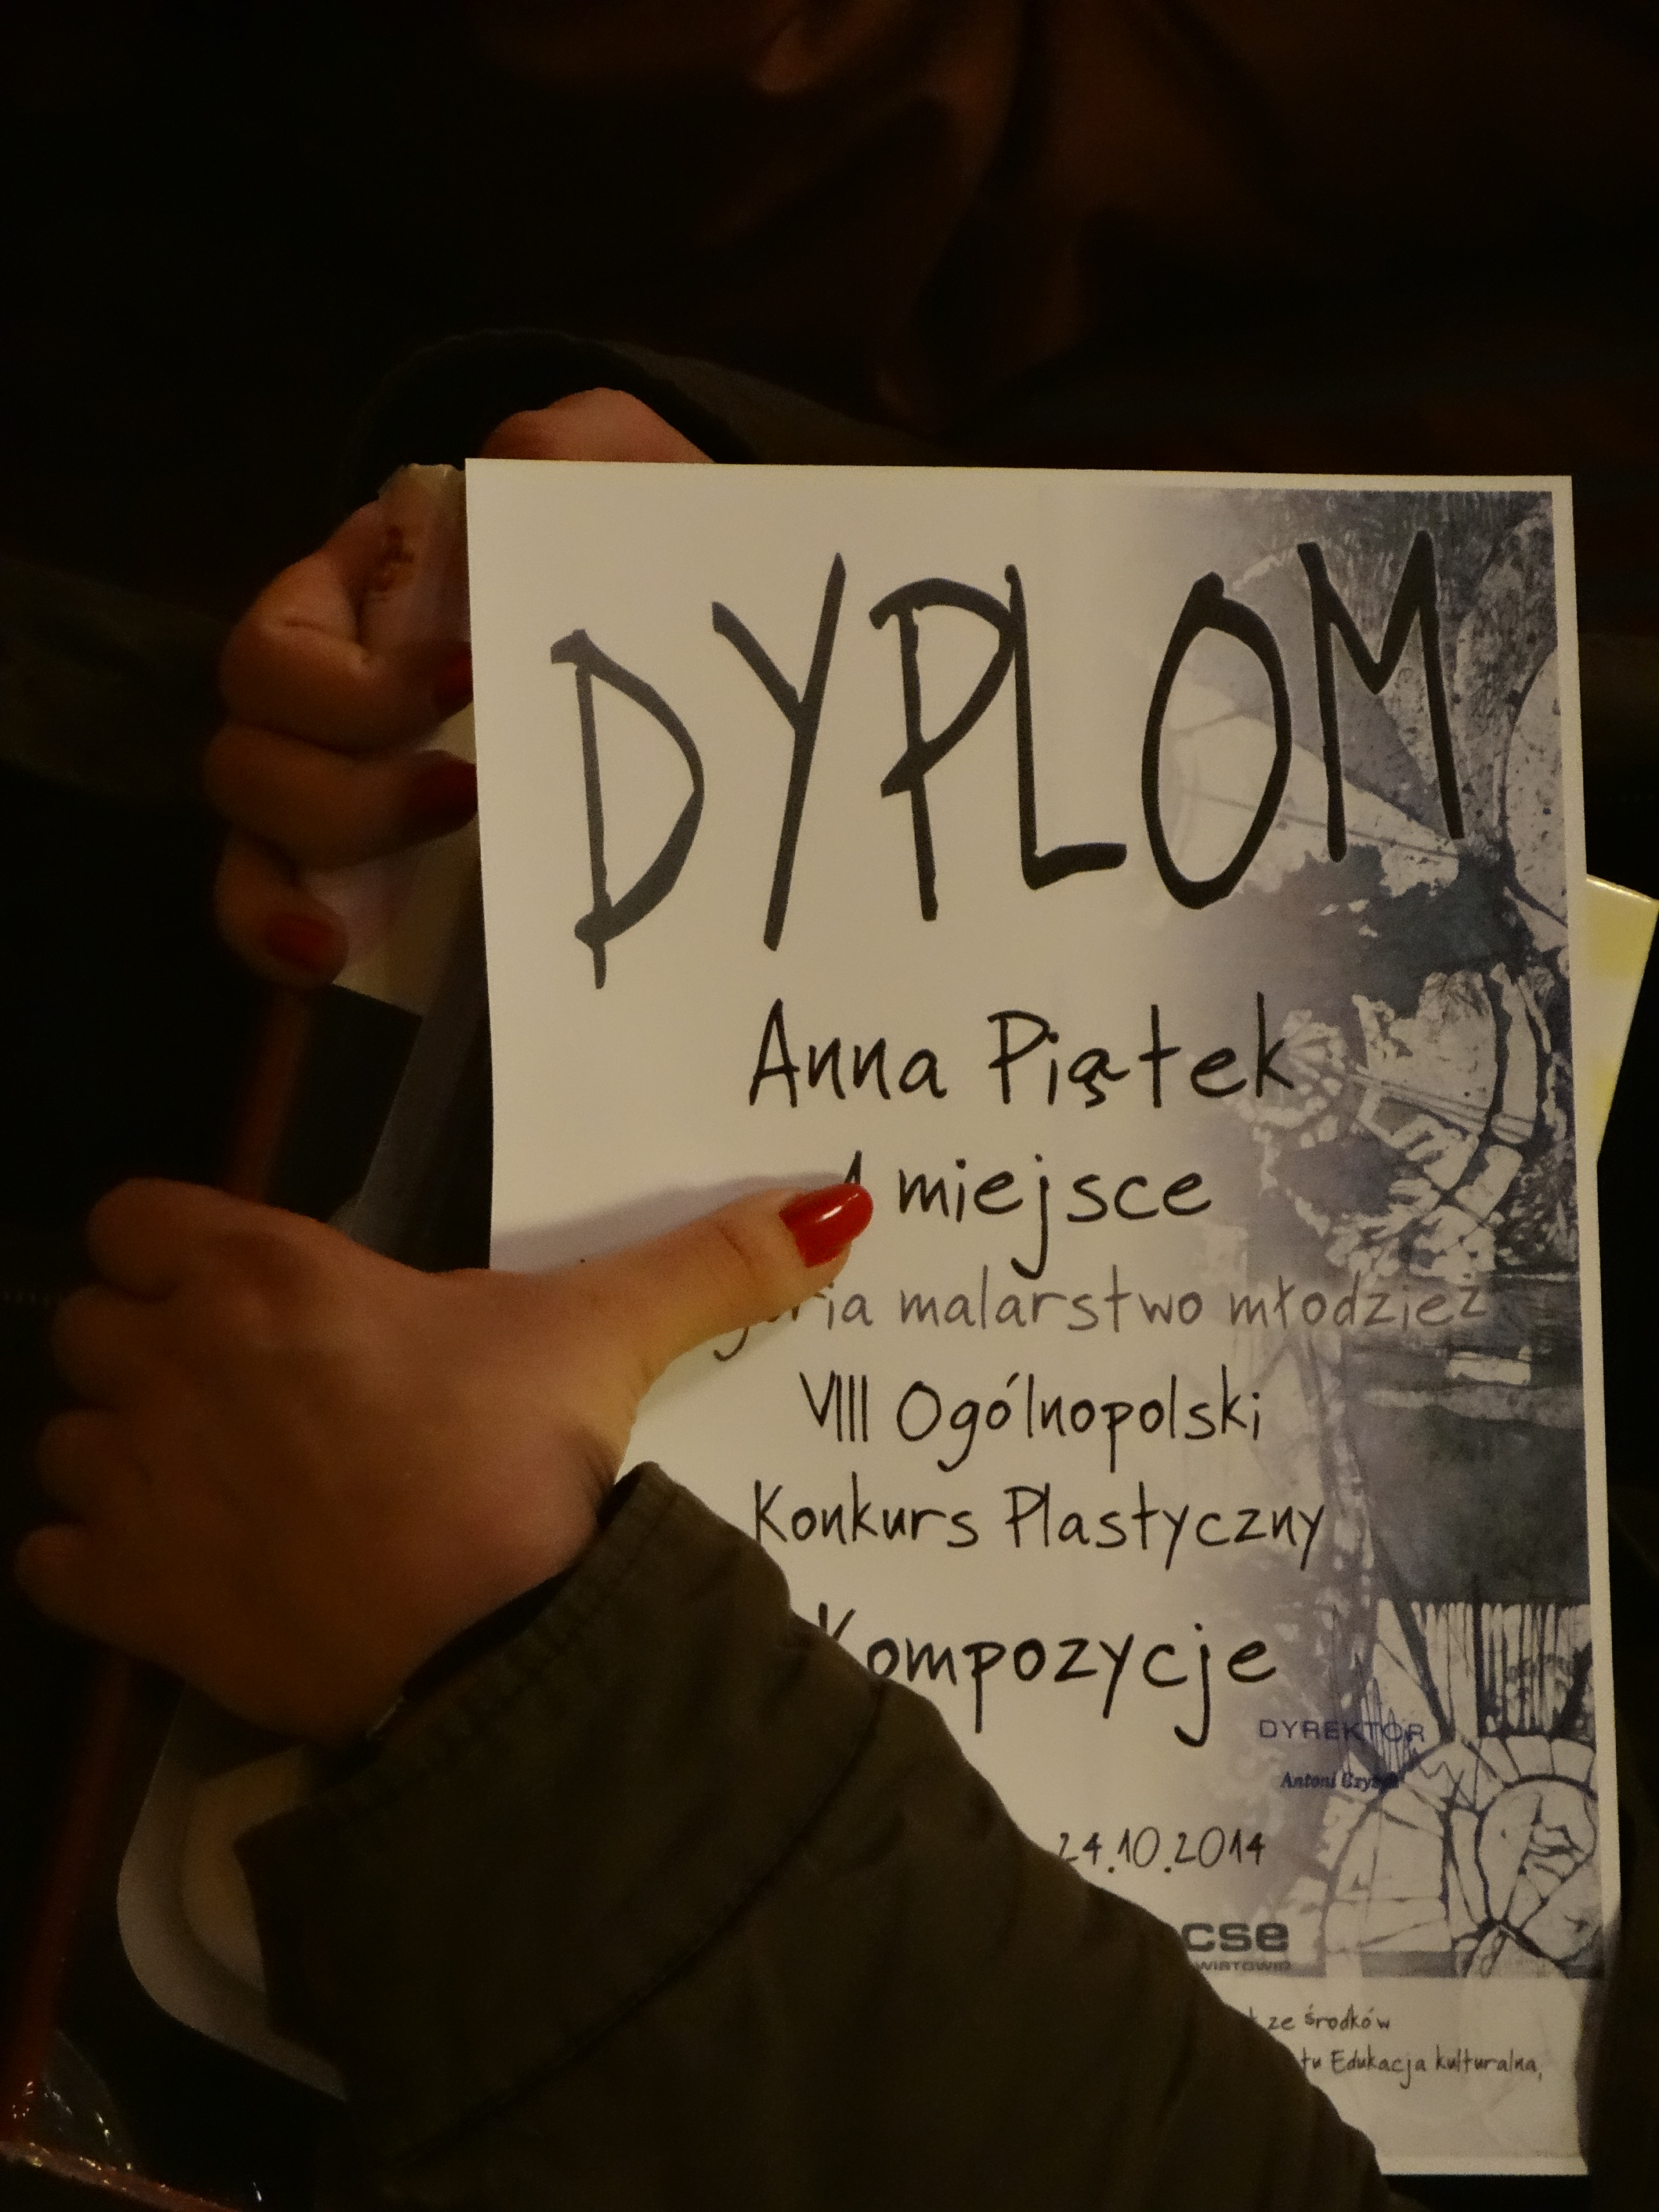 DYPLOM
Anna Piątek
1 miejsce
malarstwo młodzież
VIII Ogólnopolski
Konkurs Plastyczny
Kompozycje
DYREKTOR
Antoni
24.10.2014
cse
ze środków
Edukacja kulturalna,